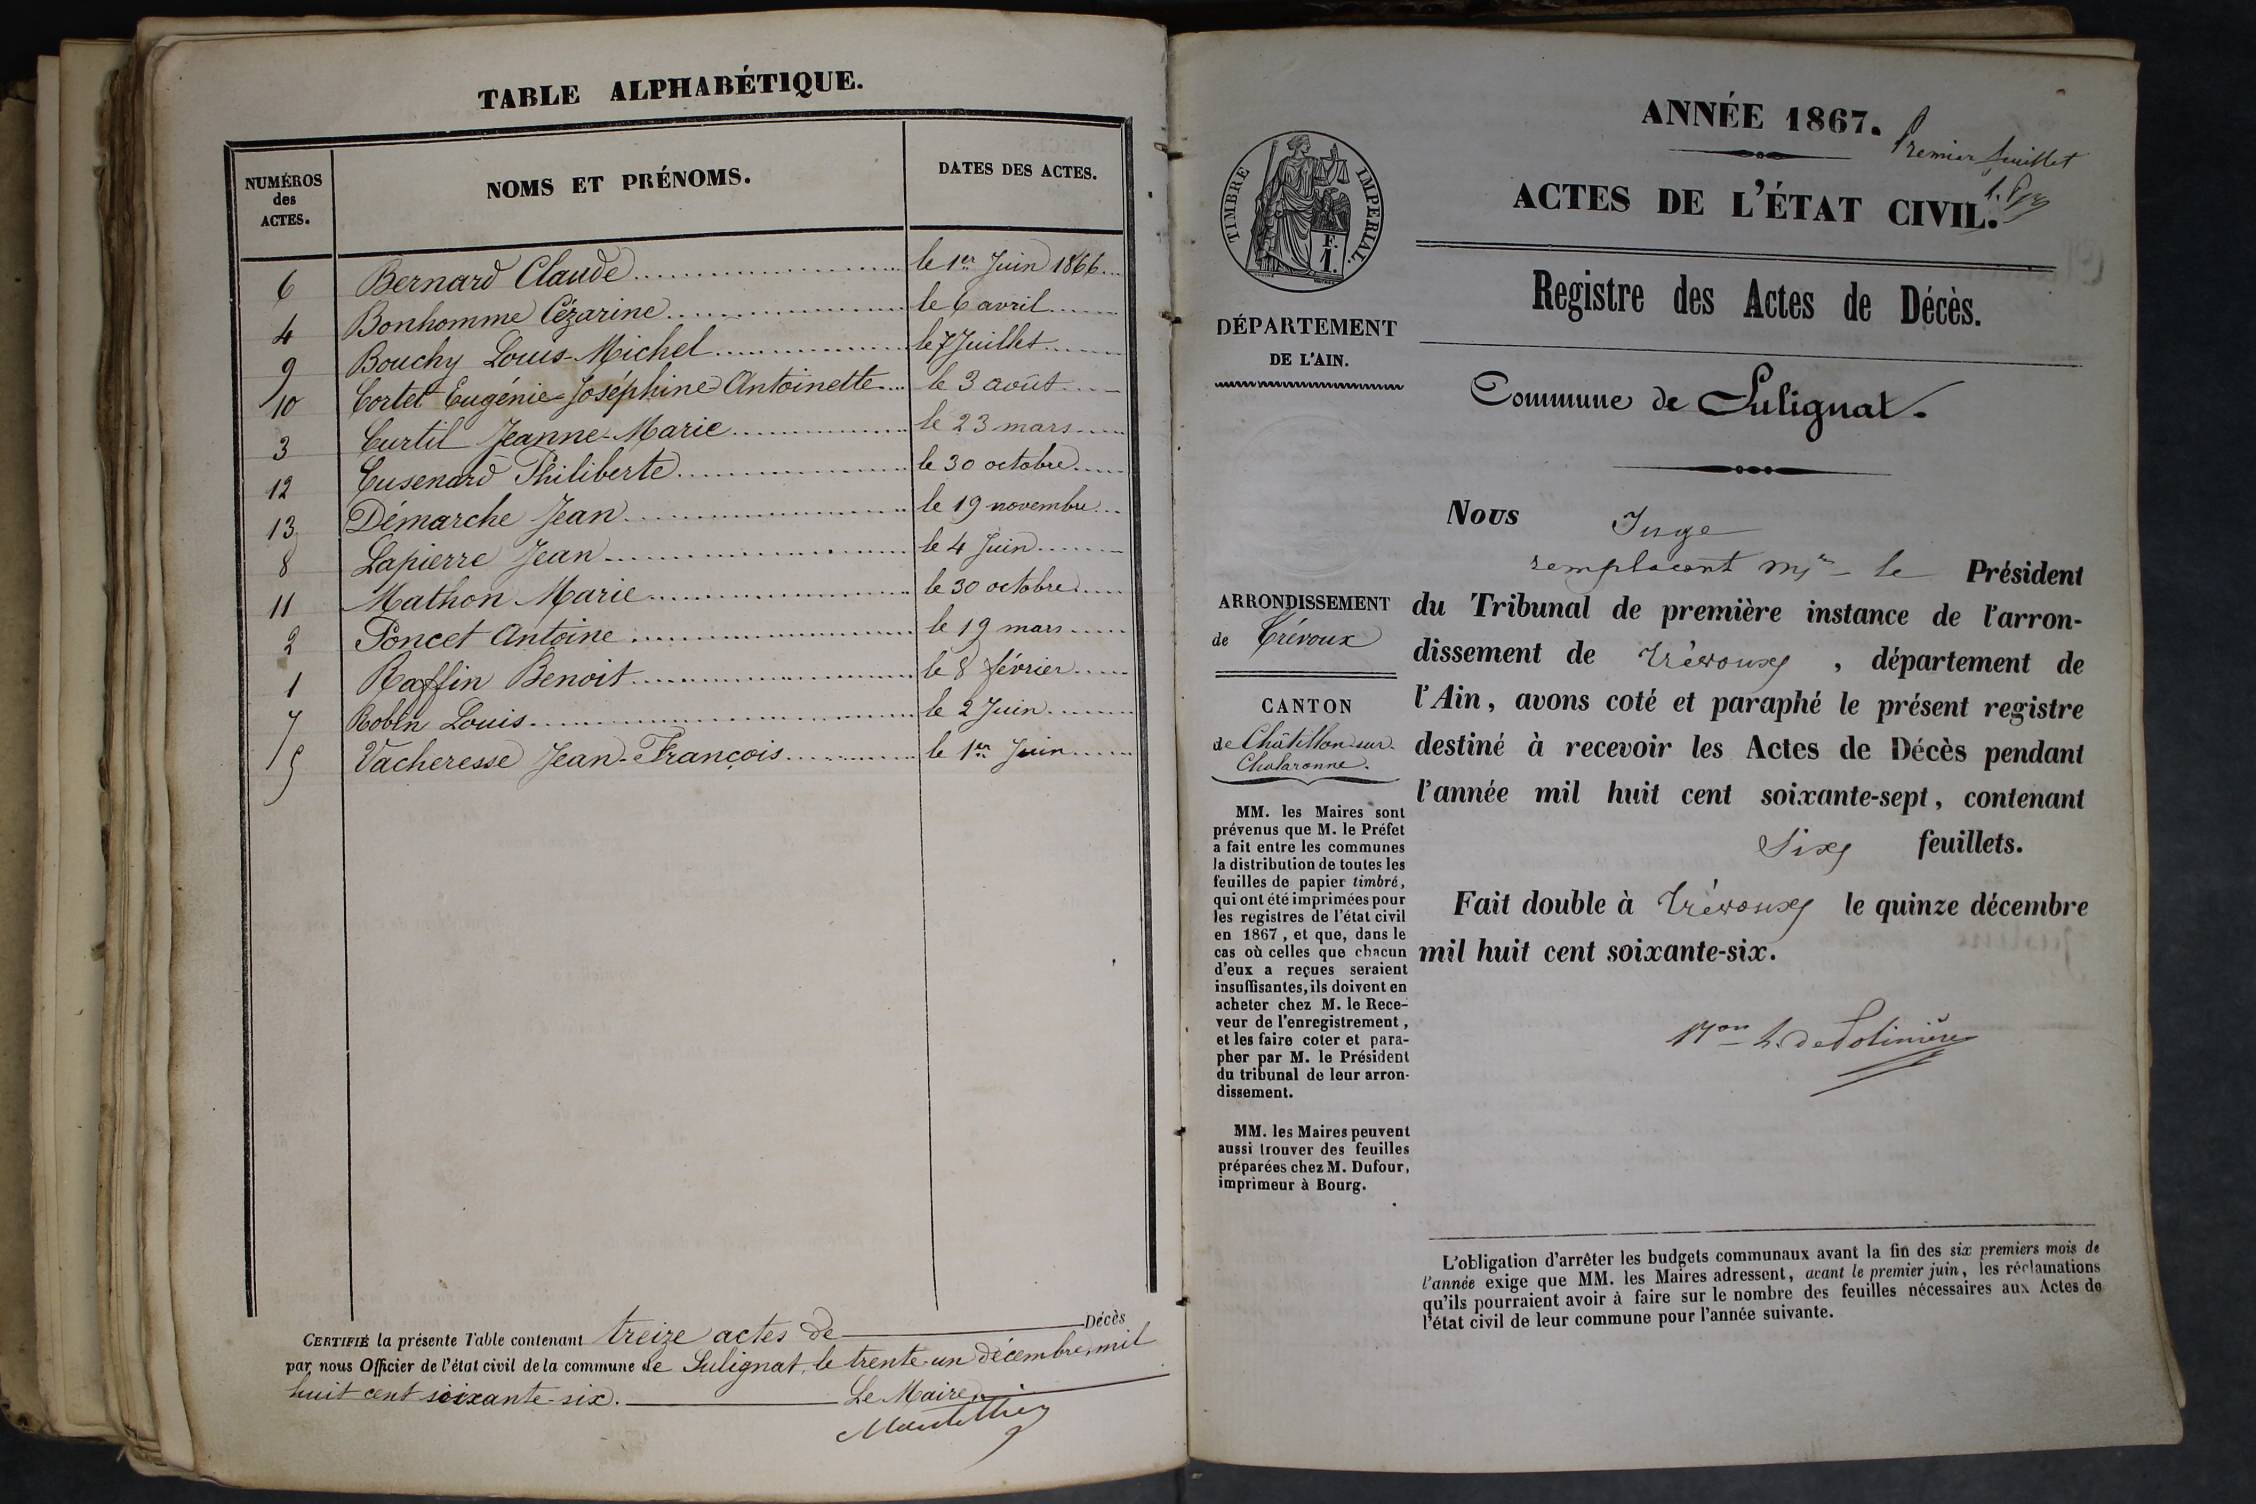 TABLE ALPHABÉTIQUE.
NUMÉROS des ACTES. NOMS ET PRÉNOMS. DATES DES ACTES.
6 Bernard Claude le 1er Juin 1866
4 Bonhomme Cézarine le 6 avril
9 Bouchy Louis-Michel le 7 Juillet
10 Cortet Eugénie-Joséphine Antoinette le 3 août
3 Curtil Jeanne-Marie le 23 mars
12 Cusenard Philiberte le 30 octobre
13 Démarche Jean le 19 novembre
8 Lapierre Jean le 4 Juin
11 Mathon Marie le 30 octobre
2 Poncet Antoine le 19 mars
1 Raffin Benoit le 8 février
7 Robin Louis le 2 Juin
5 Vacheresse Jean-François le 1er Juin
CERTIFIÉ la présente Table contenant treize actes de Décès
par nous Officier de l'état civil de la commune de Sulignat, le trente-un décembre, mil
huit cent soixante-six. Le Maire
ANNÉE 1867.
Premier feuillet
ACTES DE L'ÉTAT CIVIL.
TIMBRE IMPERIAL.
F.
1.
Registre des Actes de Décès.
DÉPARTEMENT
DE L'AIN.
Commune de Sulignat.
ARRONDISSEMENT
de Trévoux
CANTON
de Châtillon-sur-
Chalaronne.
MM. les Maires sont
prévenus que M. le Préfet
a fait entre les communes
la distribution de toutes les
feuilles de papier timbré,
qui ont été imprimées pour
les registres de l'état civil
en 1867, et que, dans le
cas où celles que chacun
d'eux a reçues seraient
insuffisantes, ils doivent en
acheter chez M. le Rece-
veur de l'enregistrement,
et les faire coter et para-
pher par M. le Président
du tribunal de leur arron-
dissement.
MM. les Maires peuvent
aussi trouver des feuilles
préparées chez M. Dufour,
imprimeur à Bourg.
Nous Juge
remplacant Mr le Président
du Tribunal de première instance de l'arron-
dissement de Trévoux, département de
l'Ain, avons coté et paraphé le présent registre
destiné à recevoir les Actes de Décès pendant
l'année mil huit cent soixante-sept, contenant
Six feuillets.
Fait double à Trévoux le quinze décembre
mil huit cent soixante-six.
L'obligation d'arrêter les budgets communaux avant la fin des six premiers mois de
l'année exige que MM. les Maires adressent, avant le premier juin, les réclamations
qu'ils pourraient avoir à faire sur le nombre des feuilles nécessaires aux Actes de
l'état civil de leur commune pour l'année suivante.